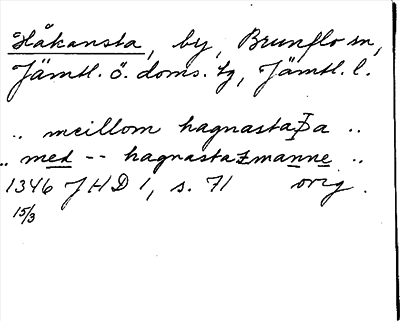 Håkansta, by, Brunflo sn,
Jämtl. ö. doms. tg, Jämtl. l.
.. meillom hagnastaþa ..
.. med -- hagnastazmanne ..
1346 JHD 1, s. 71 orig.
15/3